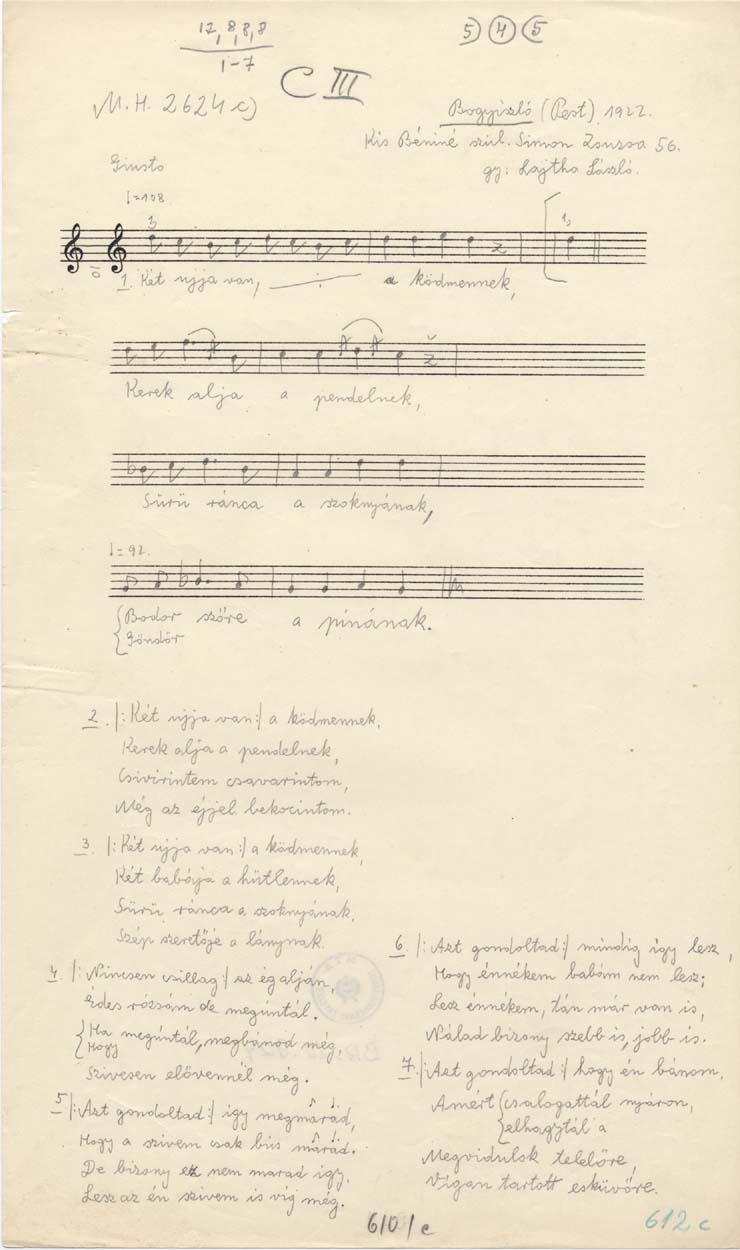 12, 8, 8, 8
1-7
5 4 5
C III
M. H. 2624 c)
Bogyiszló (Pest) 1922.
Kis Béniné szül. Simon Zsuzsa 56.
gy: Lajtha László.
Giusto
=108.
1. Két ujja van, a ködmennek,
Kerek alja a pendelnek,
Sürü ránca a szoknyának,
=92.
Bodor szőre a pinának.
Göndör
2. |: Két ujja van :| a ködmennek,
Kerek alja a pendelnek,
Csivirintem csavarintom,
Még az éjjel bekocintom.
3. |: Két ujja van :| a ködmennek,
Két babája a hütlennek,
Sürü ránca a szoknyának,
Szép szeretője a lánynak.
4. |: Nincsen csillag :| az ég alján,
Édes rózsám de megúntál.
Ha megúntál, megbánod még,
Hogy
Szivesen elővennél még.
5 |: Azt gondoltad :| így megmarad,
Hogy a szivem csak bús marad.
De bizony ez nem marad így,
Lesz az én szivem is víg még.
6. |: Azt gondoltad :| mindig így lesz,
Hogy énnékem babám nem lesz;
Lesz énnékem, tán már van is,
Nálad bizony szebb is, jobb is.
7. |: Azt gondoltad :| hogy én bánom,
Amért csalogattál nyáron,
elhagytál a
Megvidulok telelőre,
Vígan tartott esküvőre.
610/c
612 c